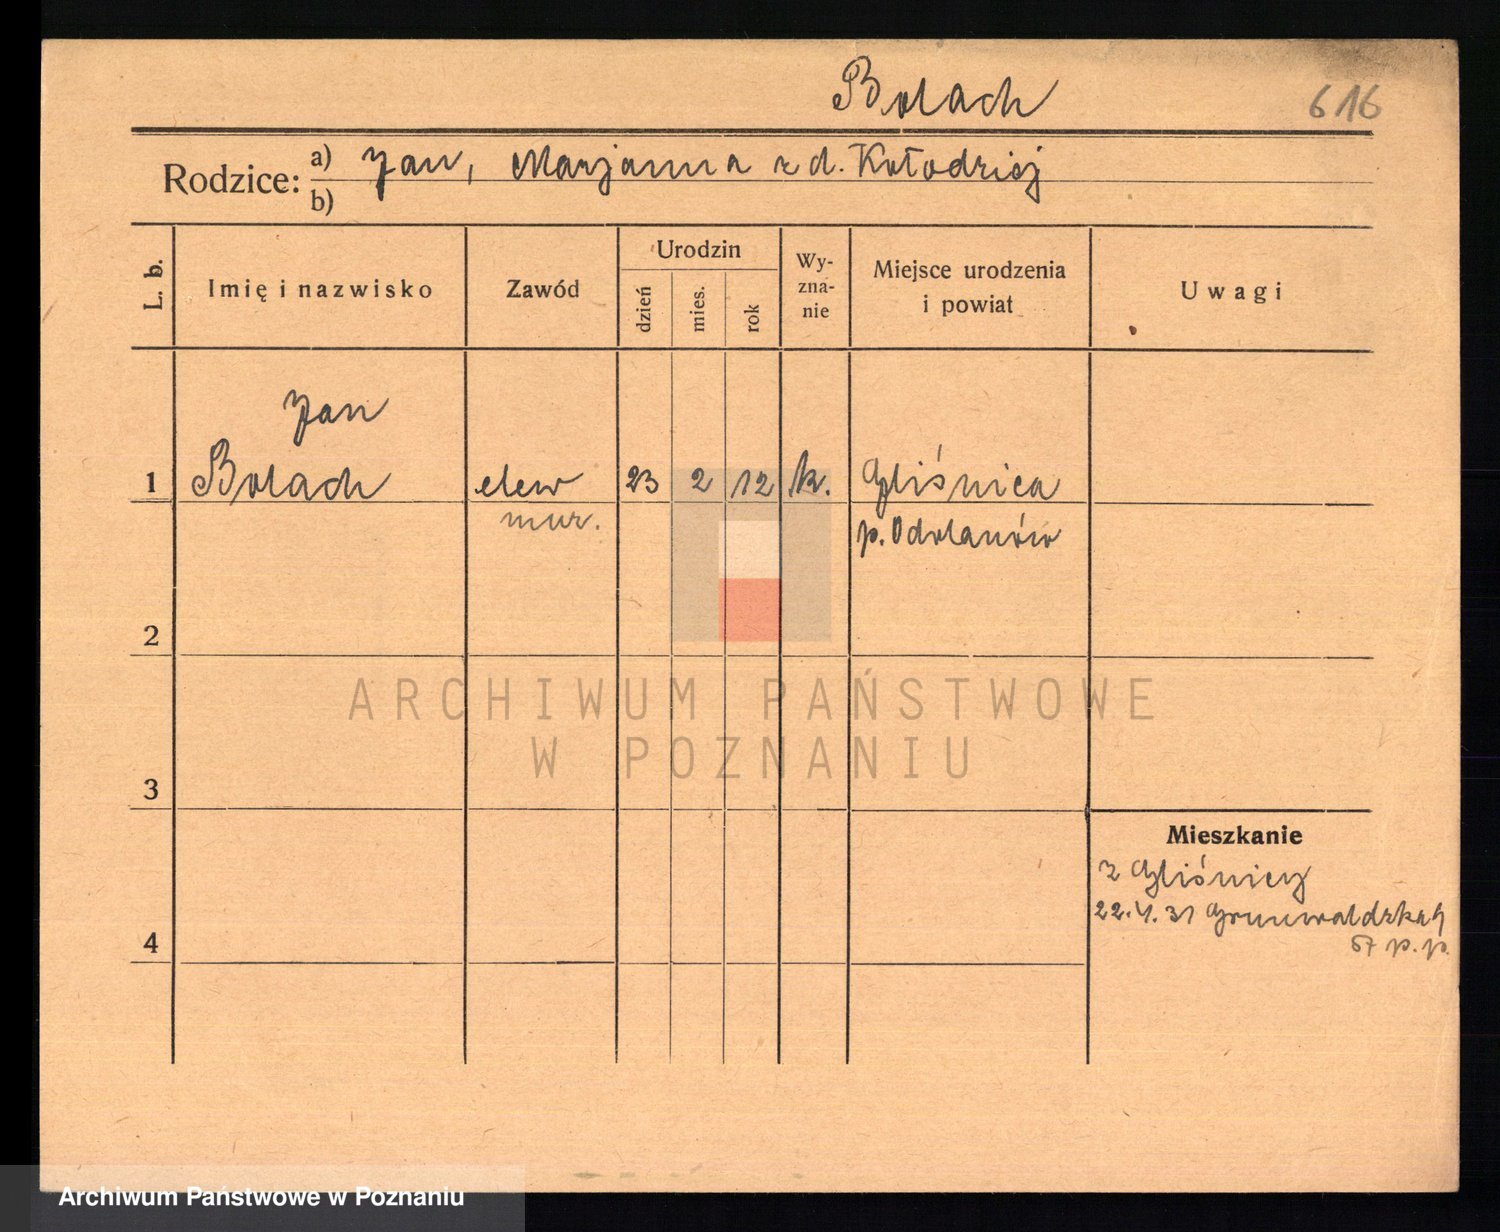 Bolach 616
Rodzice: a) Jan, Marjanna z d. Kołodziej
b)
L. b. Imię i nazwisko Zawód Urodzin dzień mies. rok Wyznanie Miejsce urodzenia i powiat Uwagi
Jan
1 Bolach elew 23 2 12 k. Gliśnica
mur. p. Odolanów
2
ARCHIWUM PAŃSTWOWE
W POZNANIU
3
Mieszkanie
z Gliśnicy
22.4.31 Grunwaldzka
4 67 p.p.
Archiwum Państwowe w Poznaniu